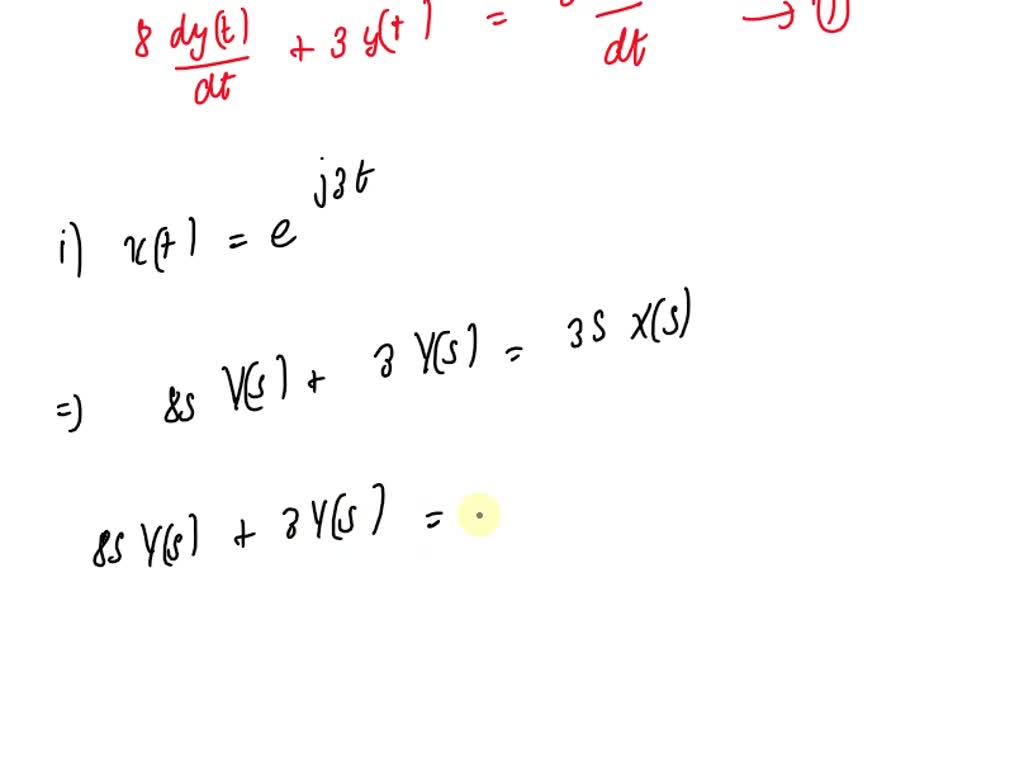 8 dy(t)/dt + 3 y(t) = /dt → ①
i) x(t) = e^{j3t}
=) 8s Y(s) + 3 Y(s) = 3s X(s)
8s Y(s) + 3 Y(s) =